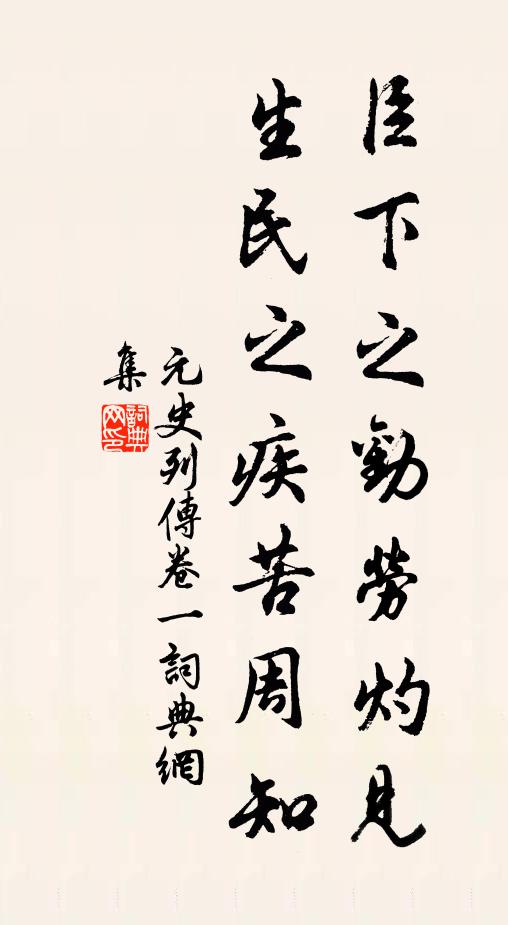 臣下之勤勞灼見
生民之疾苦周知
元史列傳卷一詞典網
集
詞典
网印